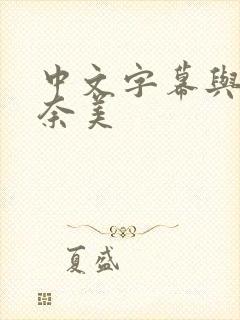 中文字幕與
奈美
夏盛